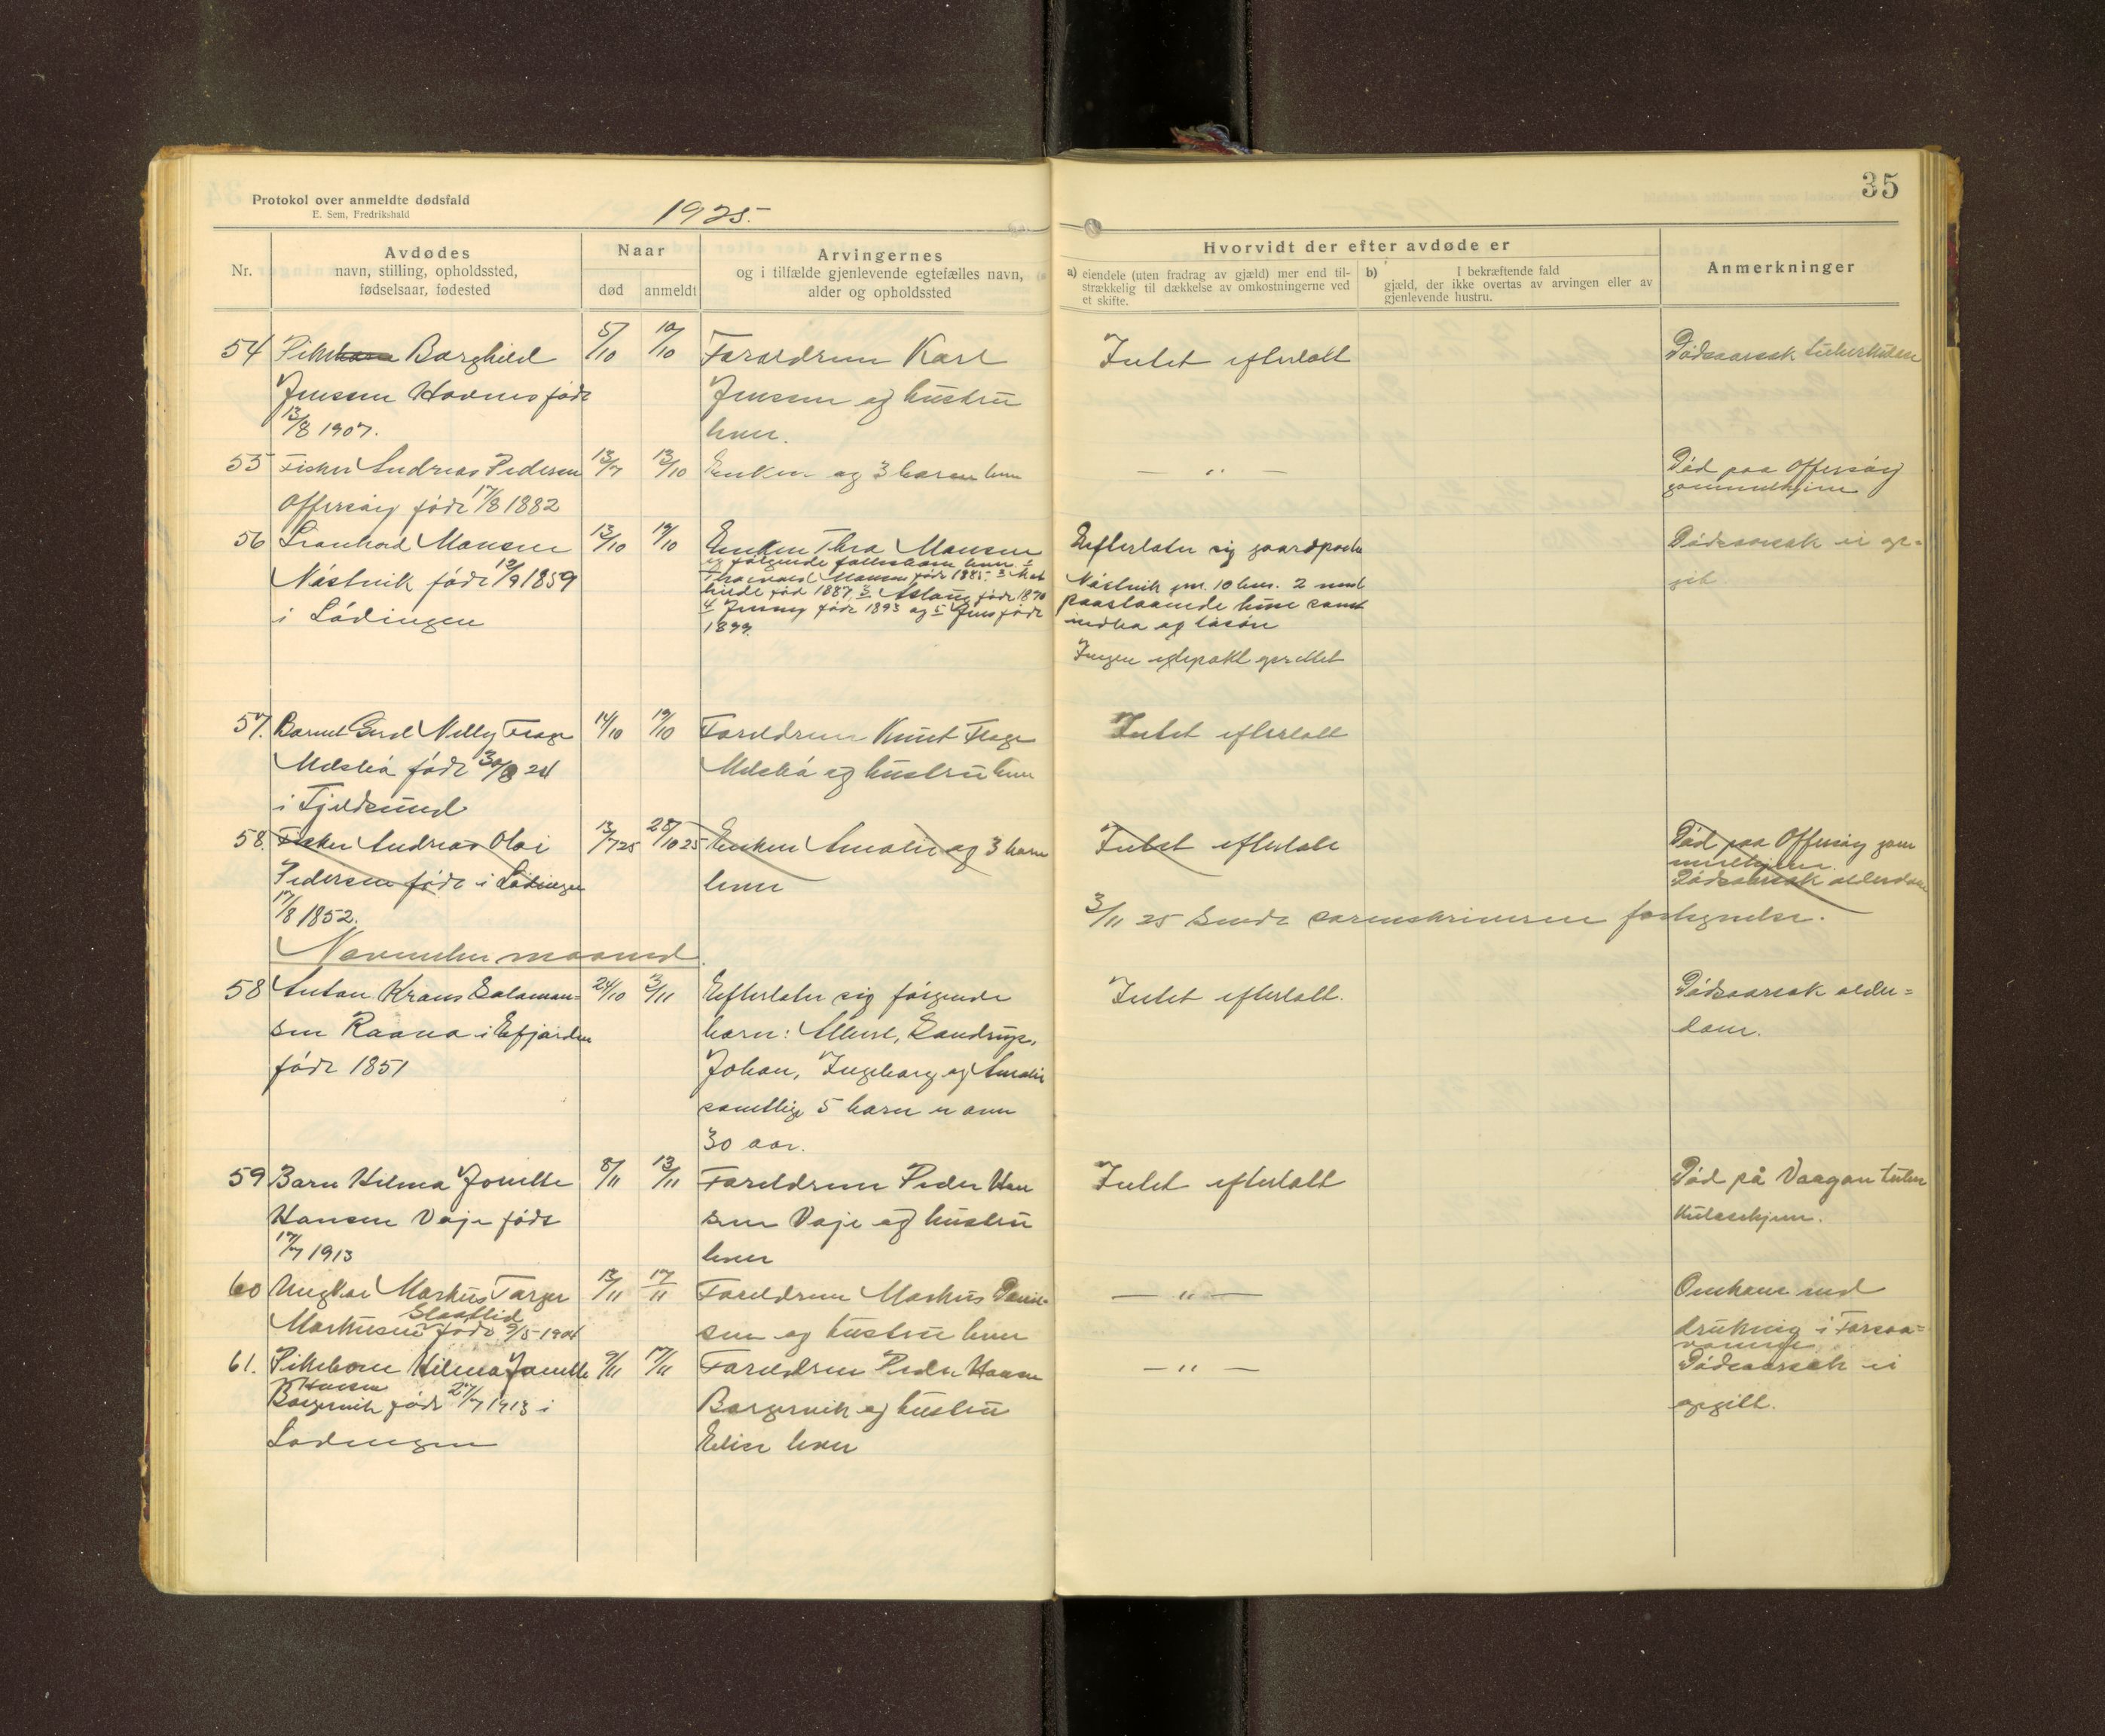 35
Protokol over anmeldte dødsfald
E. Sem, Fredrikshald
1925.
Nr.
Avdødes
navn, stilling, opholdssted,
fødselsaar, fødested
Naar
død
anmeldt
Arvingernes
og i tilfælde gjenlevende egtefælles navn,
alder og opholdssted
Hvorvidt der efter avdøde er
a) eiendele (uten fradrag av gjæld) mer end til-
strækkelig til dækkelse av omkostningerne ved
et skifte.
b) I bekræftende fald
gjæld, der ikke overtas av arvingen eller av
gjenlevende hustru.
Anmerkninger
54 Pikebarn Borghild 5/10 10/10 Forældrene Karl Intet efterlatt Dødsaarsak tuberkulose
Jensen Havnes født Jensen og hustru
13/8 1907. lever.
55 Fisker Andreas Pedersen 13/7 13/10 Enken og 3 barn lever — " — Død paa Offersøy
Offersøy født 17/8 1882 gammelhjem
56 Hansen 13/10 19/10 Enken Thea Hansen Efterlater sig gaardparten Dødsaarsak ei op=
født 12/9 1859 og følgende fellesbarn lever 10 2 med git
i Lødingen født 1885 paastaaende huse samt
født 1887, 3 Aslaug født 1890 indbo og løsøre
4 Jenny født 1893 og 5 Jens født
1899. Ingen egtepakt oprettet
57. Barnet Gerd Nelly 14/10 19/10 Foreldrene Knut Intet efterlatt
født 30/8 24 og hustru lever
i Fjeldsund
58. Fisker Andreas Olai 13/7 25 28/10 25 Enken Amalie og 3 barn Intet efterlatt Død paa Offersøy gam
Pedersen født i Lødingen lever melhjem.
17/8 1852. Dødsaarsak alderdom
3/11 25 sendt sorenskriveren fortegnelse.
November maaned
58 Anton Kraus Salamon= 24/10 3/11 Efterlater sig følgende Intet efterlatt. Dødsaarsak alder=
sen Raana i Efjorden barn: Albert, Sandrup, dom.
født 1851 Johan, Ingeborg og Amalie
samtlige 5 barn er over
30 aar.
59 Barn Hilma Jonette 8/11 13/11 Foreldrene Peder Han Intet efterlatt Død på Vaagan tuber
Hansen Vaje født sen Vaje og hustru kulosehjem.
17/7 1913 lever
60 Ungkar Markus Torger 13/11 17/11 Foreldrene Markus — " — Omkom ved
Slaatlid
Markussen født 9/5 1904 sen og hustru lever drukning i
61. Pikebarn Hilma Jonette 9/11 17/11 Foreldrene Peder Hansen — " — Dødsaarsak ei
Hansen
Borgervik født 27/7 1913 i Borgervik og hustru opgitt.
Lødingen Elise lever